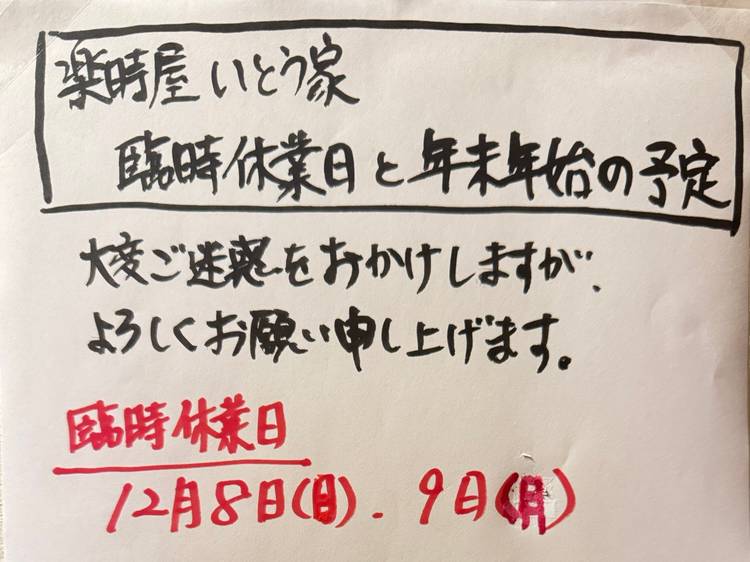 楽時屋 いとう家
臨時休業日と年末年始の予定
大変ご迷惑をおかけしますが、
よろしくお願い申し上げます。
臨時休業日
12月8日(日). 9日(月)